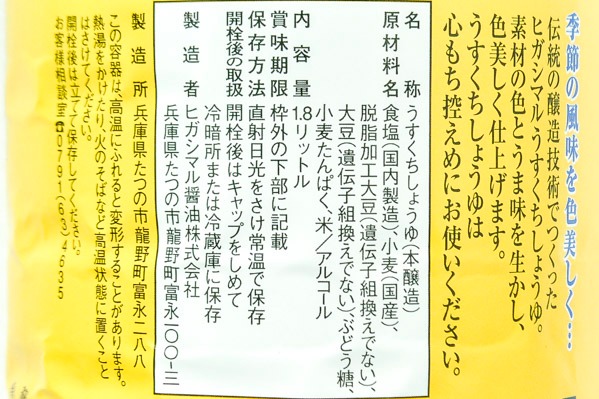 季節の風味を色美しく…
伝統の醸造技術でつくった
ヒガシマルうすくちしょうゆ。
素材の色とうま味を生かし、
色美しく仕上げます。
うすくちしょうゆは
心もち控えめにお使いください。
名称 うすくちしょうゆ(本醸造)
原材料名 食塩(国内製造)、小麦(国産)、
脱脂加工大豆(遺伝子組換えでない)、
大豆(遺伝子組換えでない)、ぶどう糖、
小麦たんぱく、米/アルコール
内容量 1.8リットル
賞味期限 枠外の下部に記載
保存方法 直射日光をさけ常温で保存
開栓後の取扱 開栓後はキャップをしめて
冷暗所または冷蔵庫に保存
製造者 ヒガシマル醤油株式会社
兵庫県たつの市龍野町富永一〇〇-三
製造所 兵庫県たつの市龍野町富永二八八
この容器は、高温にふれると変形することがあります。
熱湯をかけたり、火のそばなど高温状態に置くこと
はさけてください。
開栓後は立てて保存してください。
お客様相談室☎0791(63)4635